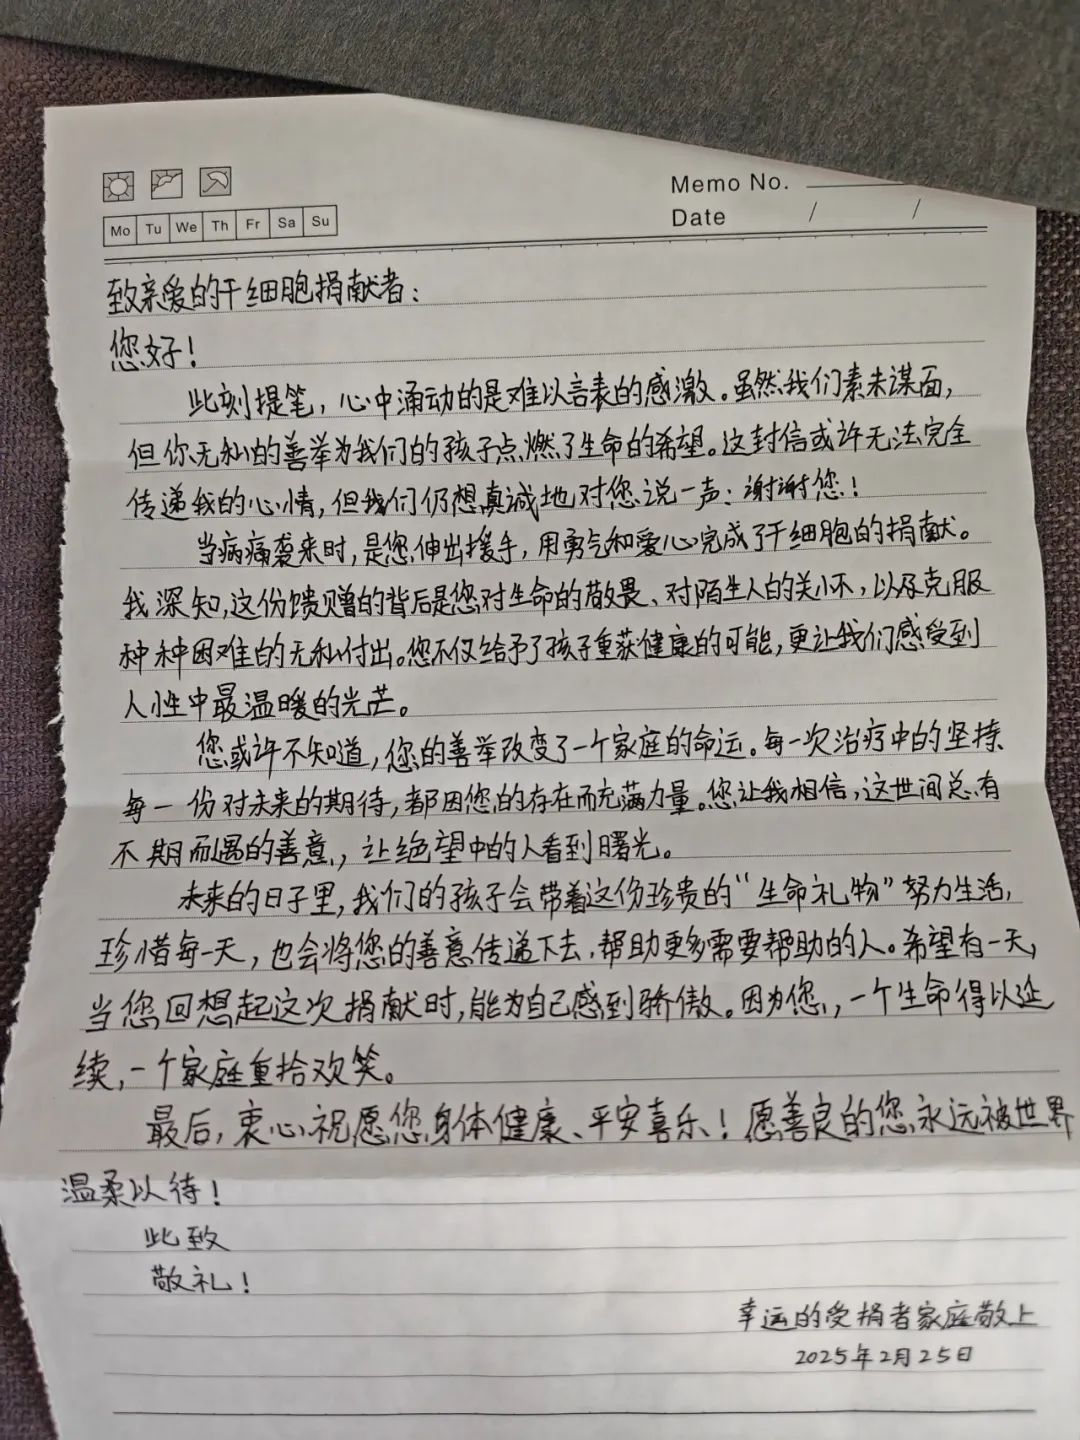 Memo No.
Date / /
Mo Tu We Th Fr Sa Su
致亲爱的干细胞捐献者：
您好！
此刻提笔，心中涌动的是难以言表的感激。虽然我们素未谋面，
但你无私的善举为我们的孩子点燃了生命的希望。这封信或许无法完全
传递我的心情，但我们仍想真诚地对您说一声：谢谢您！
当病痛袭来时，是您伸出援手，用勇气和爱心完成了干细胞的捐献。
我深知，这份馈赠的背后是您对生命的敬畏、对陌生人的关怀，以及克服
种种困难的无私付出。您不仅给予了孩子重获健康的可能，更让我们感受到
人性中最温暖的光芒。
您或许不知道，您的善举改变了一个家庭的命运。每一次治疗中的坚持、
每一份对未来的期待，都因您的存在而充满力量。您让我相信，这世间总有
不期而遇的善意，让绝望中的人看到曙光。
未来的日子里，我们的孩子会带着这份珍贵的“生命礼物”努力生活，
珍惜每一天，也会将您的善意传递下去，帮助更多需要帮助的人。希望有一天，
当您回想起这次捐献时，能为自己感到骄傲。因为您，一个生命得以延
续，一个家庭重拾欢笑。
最后，衷心祝愿您身体健康、平安喜乐！愿善良的您永远被世界
温柔以待！
此致
敬礼！
幸运的受捐者家庭敬上
2025年2月25日